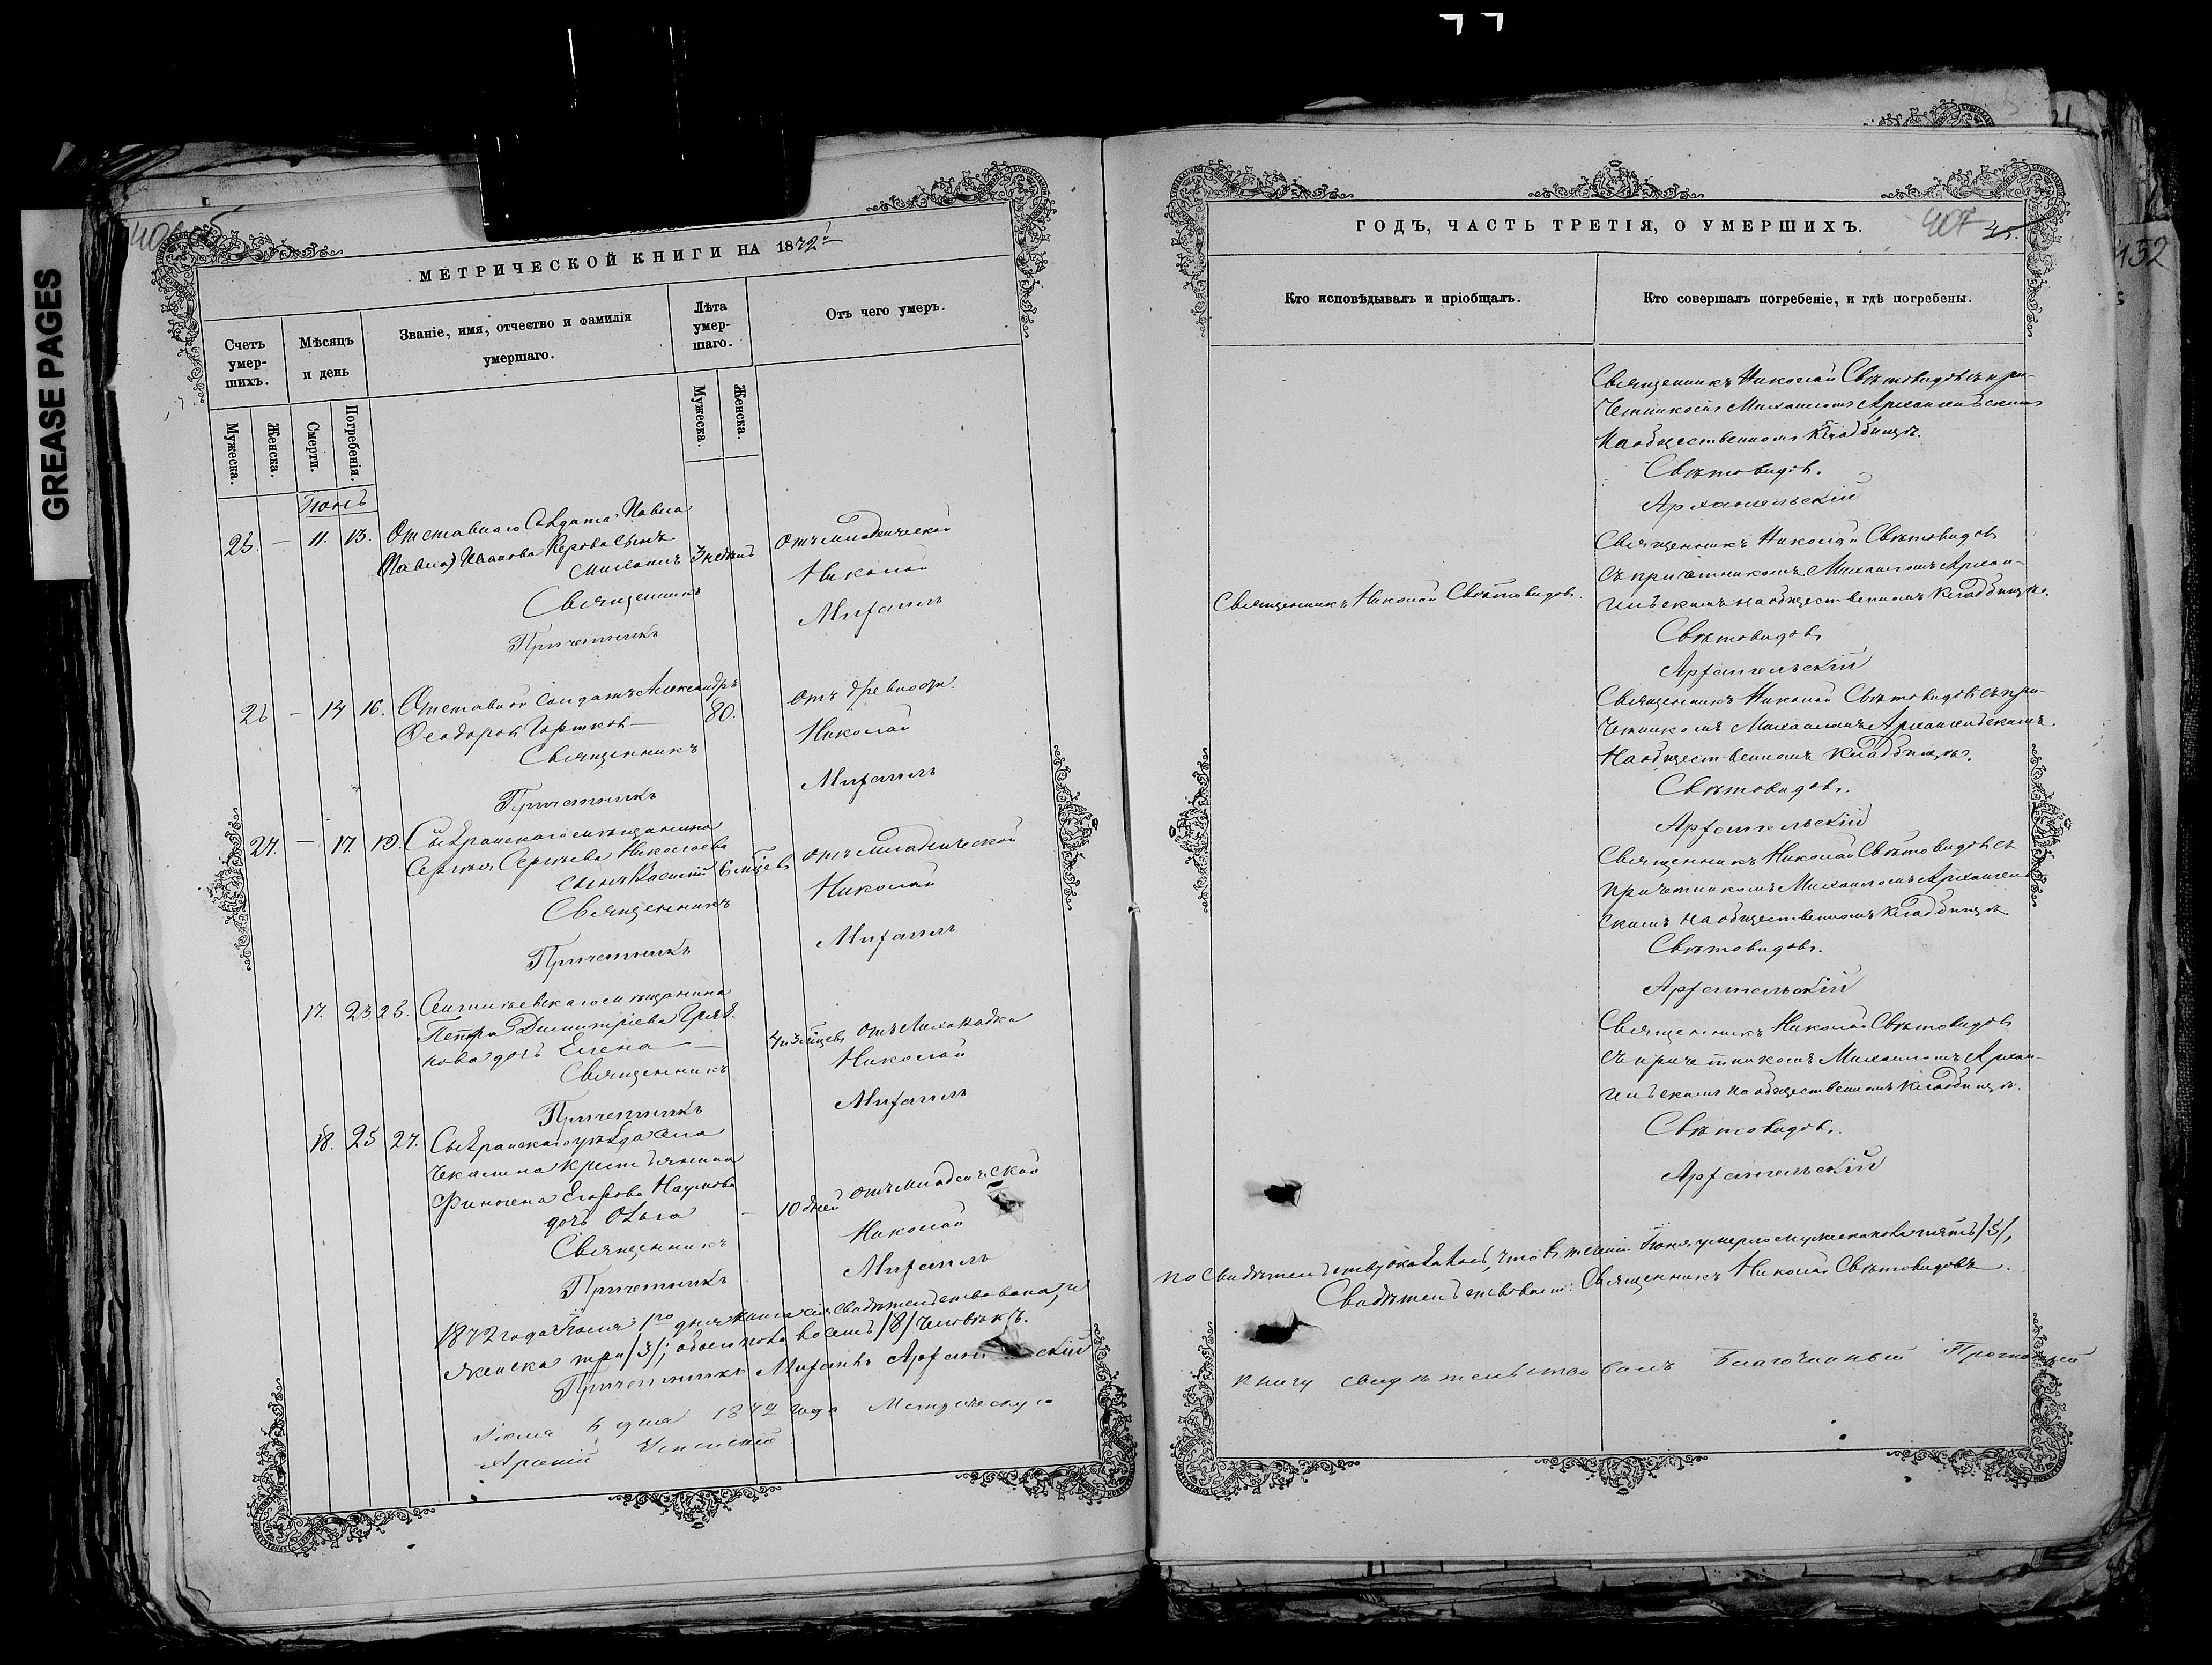 GREASE PAGES
МЕТРИЧЕСКОЙ КНИГИ НА 1872й
Счетъ умер-шихъ.
Мѣсяцъ и день
Званіе, имя, отчество и фамилія умершаго.
Лѣта умер-шаго.
Отъ чего умеръ.
Мужеска.
Женска.
Смерти.
Погребенія.
Мужеска.
Женска.
Іюнь
25. — 11. 13. Отставнаго Солдата Павла
Иванова сынъ
3 недѣль
Отъ младенческой
Священникъ Николай
Причетникъ Михаилъ
26 — 14 16. Отставной Солдатъ Александръ
Ѳеодоровъ —
80.
Отъ древности.
Священникъ Николай
Причетникъ Михаилъ
27. — 17. 19. Сызранскаго мѣщанина
Сергѣя Сергѣева Николаева
сынъ Василій 6 мѣцевъ
Отъ младенческой
Священникъ Николай
Причетникъ Михаилъ
17. 23. 25. Сенгилѣевскаго мѣщанина
Петра Димитріева
нова дочь Елена —
Отъ лихорадки
Священникъ Николай
Причетникъ Михаилъ
18. 25 27. Сызранскаго уѣзда села
Чекалина крестьянина
Финогена Егорова Наумова
дочь Ольга — 10 дней
Отъ младенческой
Священникъ Николай
Причетникъ Михаилъ
1872 года Іюля 1го дня книга сія свидѣтельствована, и
женска три /3/; обоего пола восемь /8/ человѣкъ.
Причетникъ Михаилъ
Іюля дня 1872 года Метрическую
Успенскій
ГОДЪ, ЧАСТЬ ТРЕТІЯ, О УМЕРШИХЪ.
407
45.
152
Кто исповѣдывалъ и пріобщалъ.
Кто совершалъ погребеніе, и гдѣ погребены.
Священникъ Николай Свѣтовидовъ съ при-
четникомъ Михаиломъ Архангельскимъ
На общественномъ Кладбищѣ.
Свѣтовидовъ.
Архангельскій
Священникъ Николай Свѣтовидовъ.
Священникъ Николай Свѣтовидовъ
съ причетникомъ Михаиломъ Архан-
гельскимъ на общественномъ Кладбищѣ.
Свѣтовидовъ
Архангельскій
Священникъ Николай Свѣтовидовъ съ при-
четникомъ Михаиломъ Архангельскимъ.
На общественномъ Кладбищѣ.
Свѣтовидовъ.
Архангельскій
Священникъ Николай Свѣтовидовъ съ
причетникомъ Михаиломъ Архангель-
скимъ на общественномъ Кладбищѣ.
Свѣтовидовъ.
Архангельскій
Священникъ Николай Свѣтовидовъ
съ причетникомъ Михаиломъ Архан-
гельскимъ на общественномъ Кладбищѣ.
Свѣтовидовъ.
Архангельскій
по свидѣтельству оказалось, что въ теченіи Іюня умерло мужеска пола пять /5/,
Свидѣтельствовалъ: Священникъ Николай Свѣтовидовъ.
книгу свидѣтельствовалъ Благочинный Протоіерей